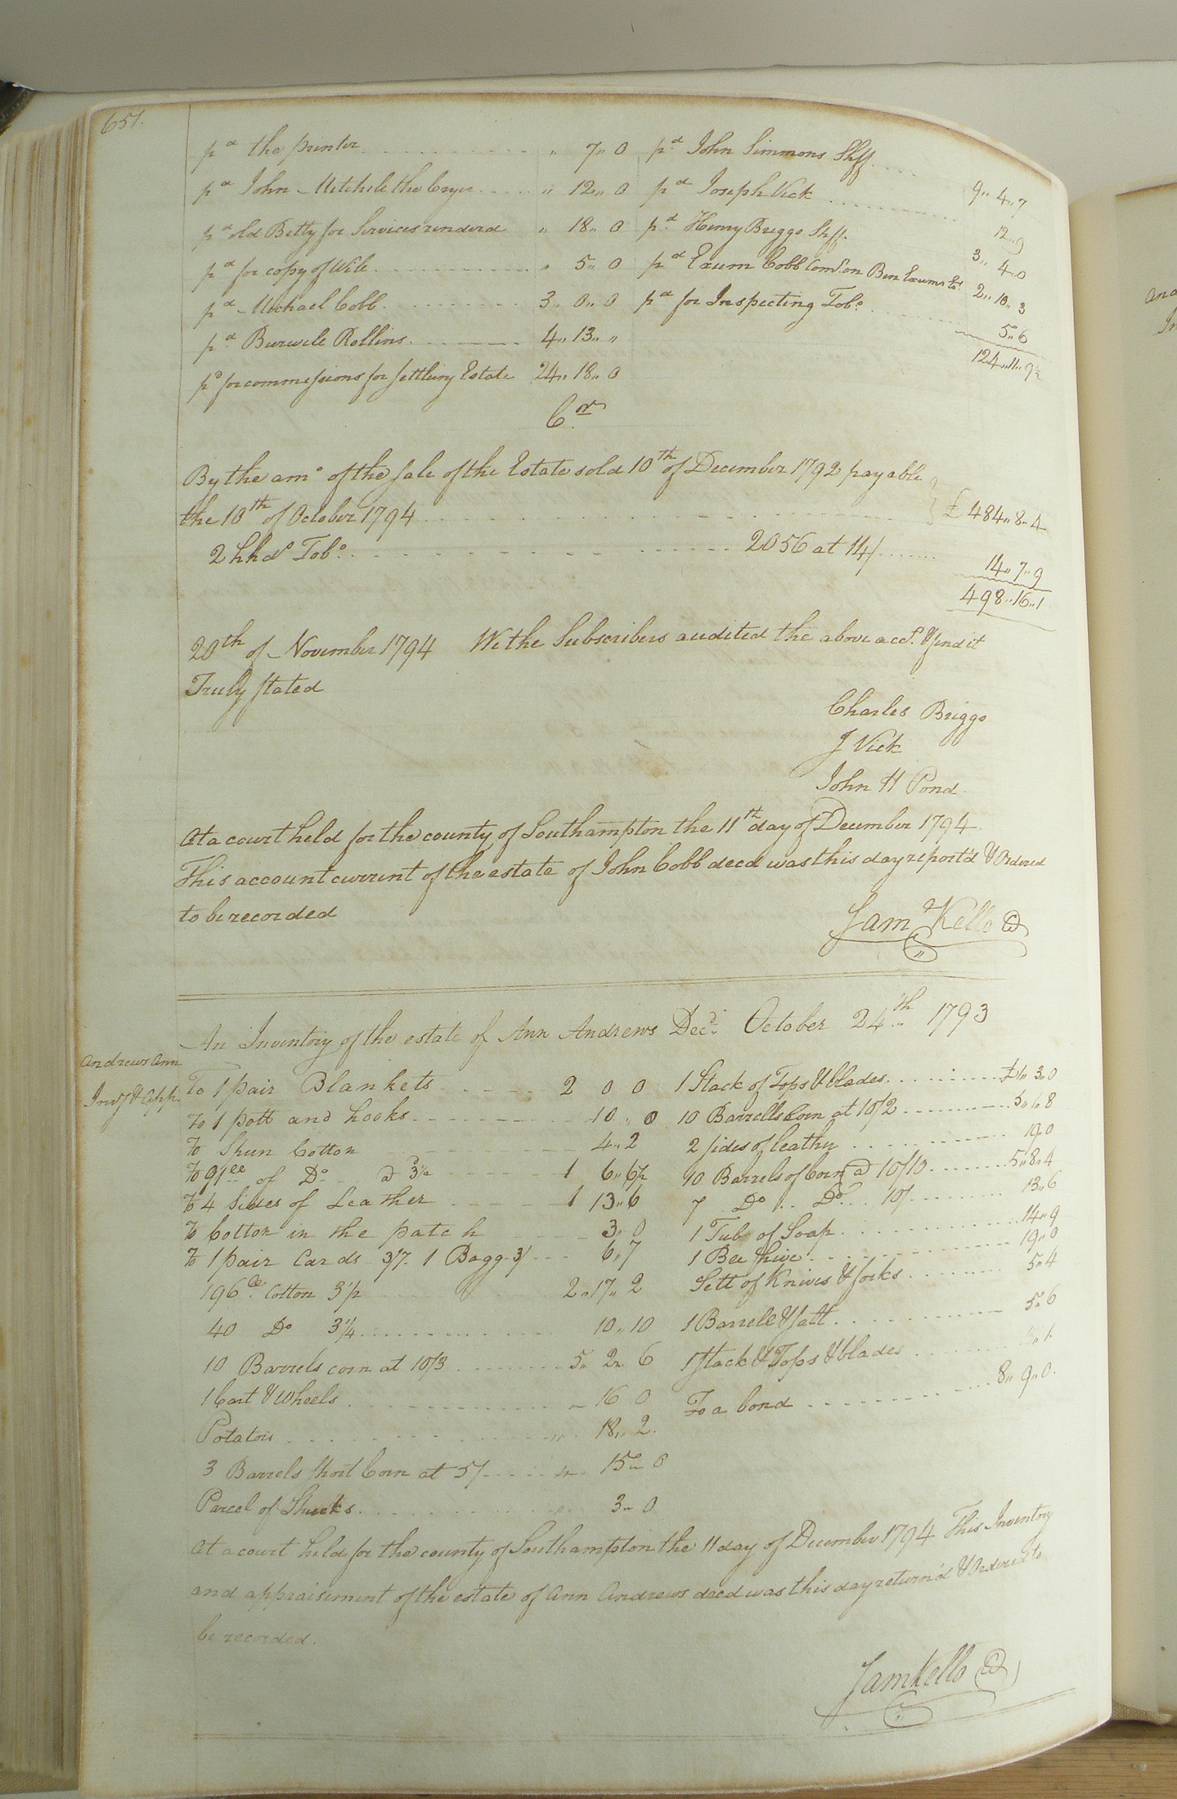 651.
pd the printer „ 7„ 0 pd John Simmons Shff 9„ 4„ 7
pd John Mitchele the Cryer „ 12„ 0 pd Joseph Vick 12„ 9
pd old Betty for Services renderd „ 18„ 0 pd Henry Briggs Shff. 3„ 4„ 0
pd for copy of Wile „ 5„ 0 pd Exum Cobb Ben Exums 2„ 10„ 3
pd Michael Cobb 3„ 0„ 0 pd for Inspecting Tobo. 5„ 6
pd Burwele Rollins 4„ 13„ „ 124„ 11„ 9½
pd for commissions for settling Estate 24„ 18„ 0
Cr
By the amo of the sale of the Estate sold 10th of December 1792 payable
the 10th of October 1794 £ 484„ 8„ 4
2 hhds Tobo. 2056 at 14/ 14„ 7„ 9
498„ 16„ 1
20th of November 1794 We the Subscribers audited the above acct. & find it
Truly stated
Charles Briggs
J Vick
John H Pond
At a court held for the county of Southampton the 11th day of December 1794
This account current of the estate of John Cobb decd was this day report'd & Ordered
to be recorded
Saml Kello CC
An Inventory of the estate of Ann Andrews Decd. October 24th 1793
Andrews Ann
Invy & App.
To 1 pair Blankets 2 0 0 1 Stack of Tops & blades £1„ 3„ 0
To 1 pott and hooks 10„ 0 10 Barrells Corn at 10/2 5„ 1„ 8
To Spun Cotton 4„ 2 2 sides of leather 19„ 0
To 91 of Do @ 3½ 1 6„ 6½ 10 Barrels of Corn @ 10/10 5„ 8„ 4
To 4 Sides of Leather 1 13„ 6 7 Do Do 10/ 13„ 6
To Cotton in the patch 3„ 0 1 Tub of Soap 14„ 9
To 1 pair Cards 3/7. 1 Bagg 3/ 6„ 7 1 Bee hive 19„ 0
196 Cotton 3½ 2„ 17„ 2 Sett of Knives & forks 5„ 4
40 Do 3¼ 10„ 10 1 Barrell & salt 5„ 6
10 Barrels corn at 10/3 5„ 2„ 6 1 stack & Tops & blades
1 Cart & Wheels 16 0 To a bond 8„ 9„ 0.
Potatoes 18„ 2.
3 Barrels short Corn at 5/ 15„ 0
Parcel of Shucks 3„ 0
At a court held for the county of Southampton the 11 day of December 1794 This Inventory
and appraisement of the estate of Ann Andrews decd was this day return'd & Ordered to
be recorded.
Saml Kello CC